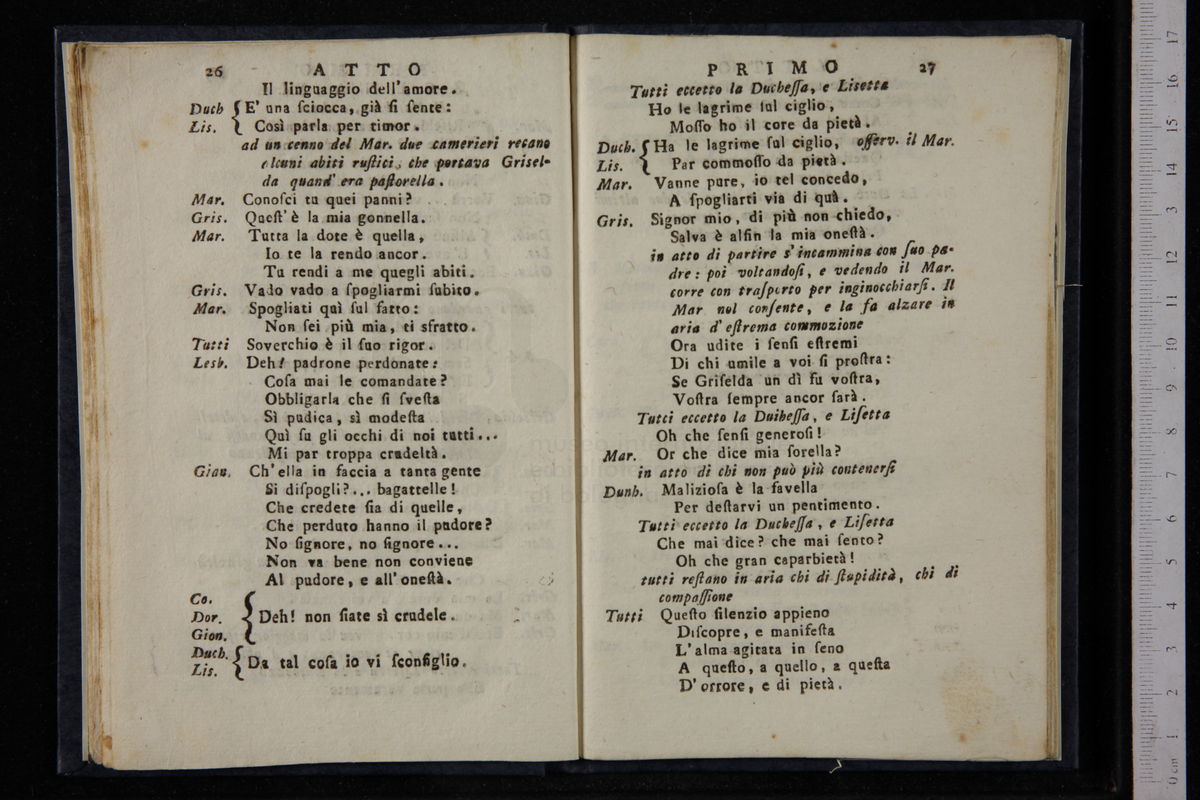 26 ATTO
Il linguaggio dell'amore.
Duch { E' una ſciocca, già ſi ſente:
Lis. { Così parla per timor.
ad un cenno del Mar. due camerieri recano
alcuni abiti ruſtici, che portava Griſel-
da quand' era paſtorella.
Mar. Conoſci tu quei panni?
Gris. Queſt' è la mia gonnella.
Mar. Tutta la dote è quella,
Io te la rendo ancor.
Tu rendi a me quegli abiti.
Gris. Vado vado a ſpogliarmi ſubito.
Mar. Spogliati quì ſul fatto:
Non ſei più mia, ti sfratto.
Tutti Soverchio è il ſuo rigor.
Lesb. Deh! padrone perdonate:
Coſa mai le comandate?
Obbligarla che ſi ſveſta
Sì pudica, sì modeſta
Quì ſu gli occhi di noi tutti...
Mi par troppa crudeltà.
Gian. Ch'ella in faccia a tanta gente
Si diſpogli?... bagattelle!
Che credete ſia di quelle,
Che perduto hanno il pudore?
No ſignore, no ſignore...
Non va bene non conviene
Al pudore, e all'oneſtà.
Co.
Dor. { Deh! non ſiate sì crudele.
Gion.
Duch. { Da tal coſa io vi ſconſiglio.
Lis.
PRIMO 27
Tutti eccetto la Ducheſſa, e Lisetta
Ho le lagrime ſul ciglio,
Moſſo ho il core da pietà.
Duch. { Ha le lagrime ſul ciglio, oſſerv. il Mar.
Lis. { Par commoſſo da pietà.
Mar. Vanne pure, io tel concedo,
A ſpogliarti via di quà.
Gris. Signor mio, di più non chiedo,
Salva è alfin la mia oneſtà.
in atto di partire s'incammina con ſuo pa-
dre: poi voltandoſi, e vedendo il Mar.
corre con traſporto per inginocchiarſi. Il
Mar nol conſente, e la fa alzare in
aria d'eſtrema commozione
Ora udite i ſenſi eſtremi
Di chi umile a voi ſi proſtra:
Se Griſelda un dì fu voſtra,
Voſtra ſempre ancor ſarà.
Tutti eccetto la Duiheſſa, e Liſetta
Oh che ſenſi generoſi!
Mar. Or che dice mia ſorella?
in atto di chi non può più contenerſi
Dunh. Malizioſa è la favella
Per deſtarvi un pentimento.
Tutti eccetto la Ducheſſa, e Liſetta
Che mai dice? che mai ſento?
Oh che gran caparbietà!
tutti reſtano in aria chi di ſtupidità, chi di
compaſſione
Tutti Queſto ſilenzio appieno
Diſcopre, e manifeſta
L'alma agitata in ſeno
A queſto, a quello, a queſta
D'orrore, e di pietà.